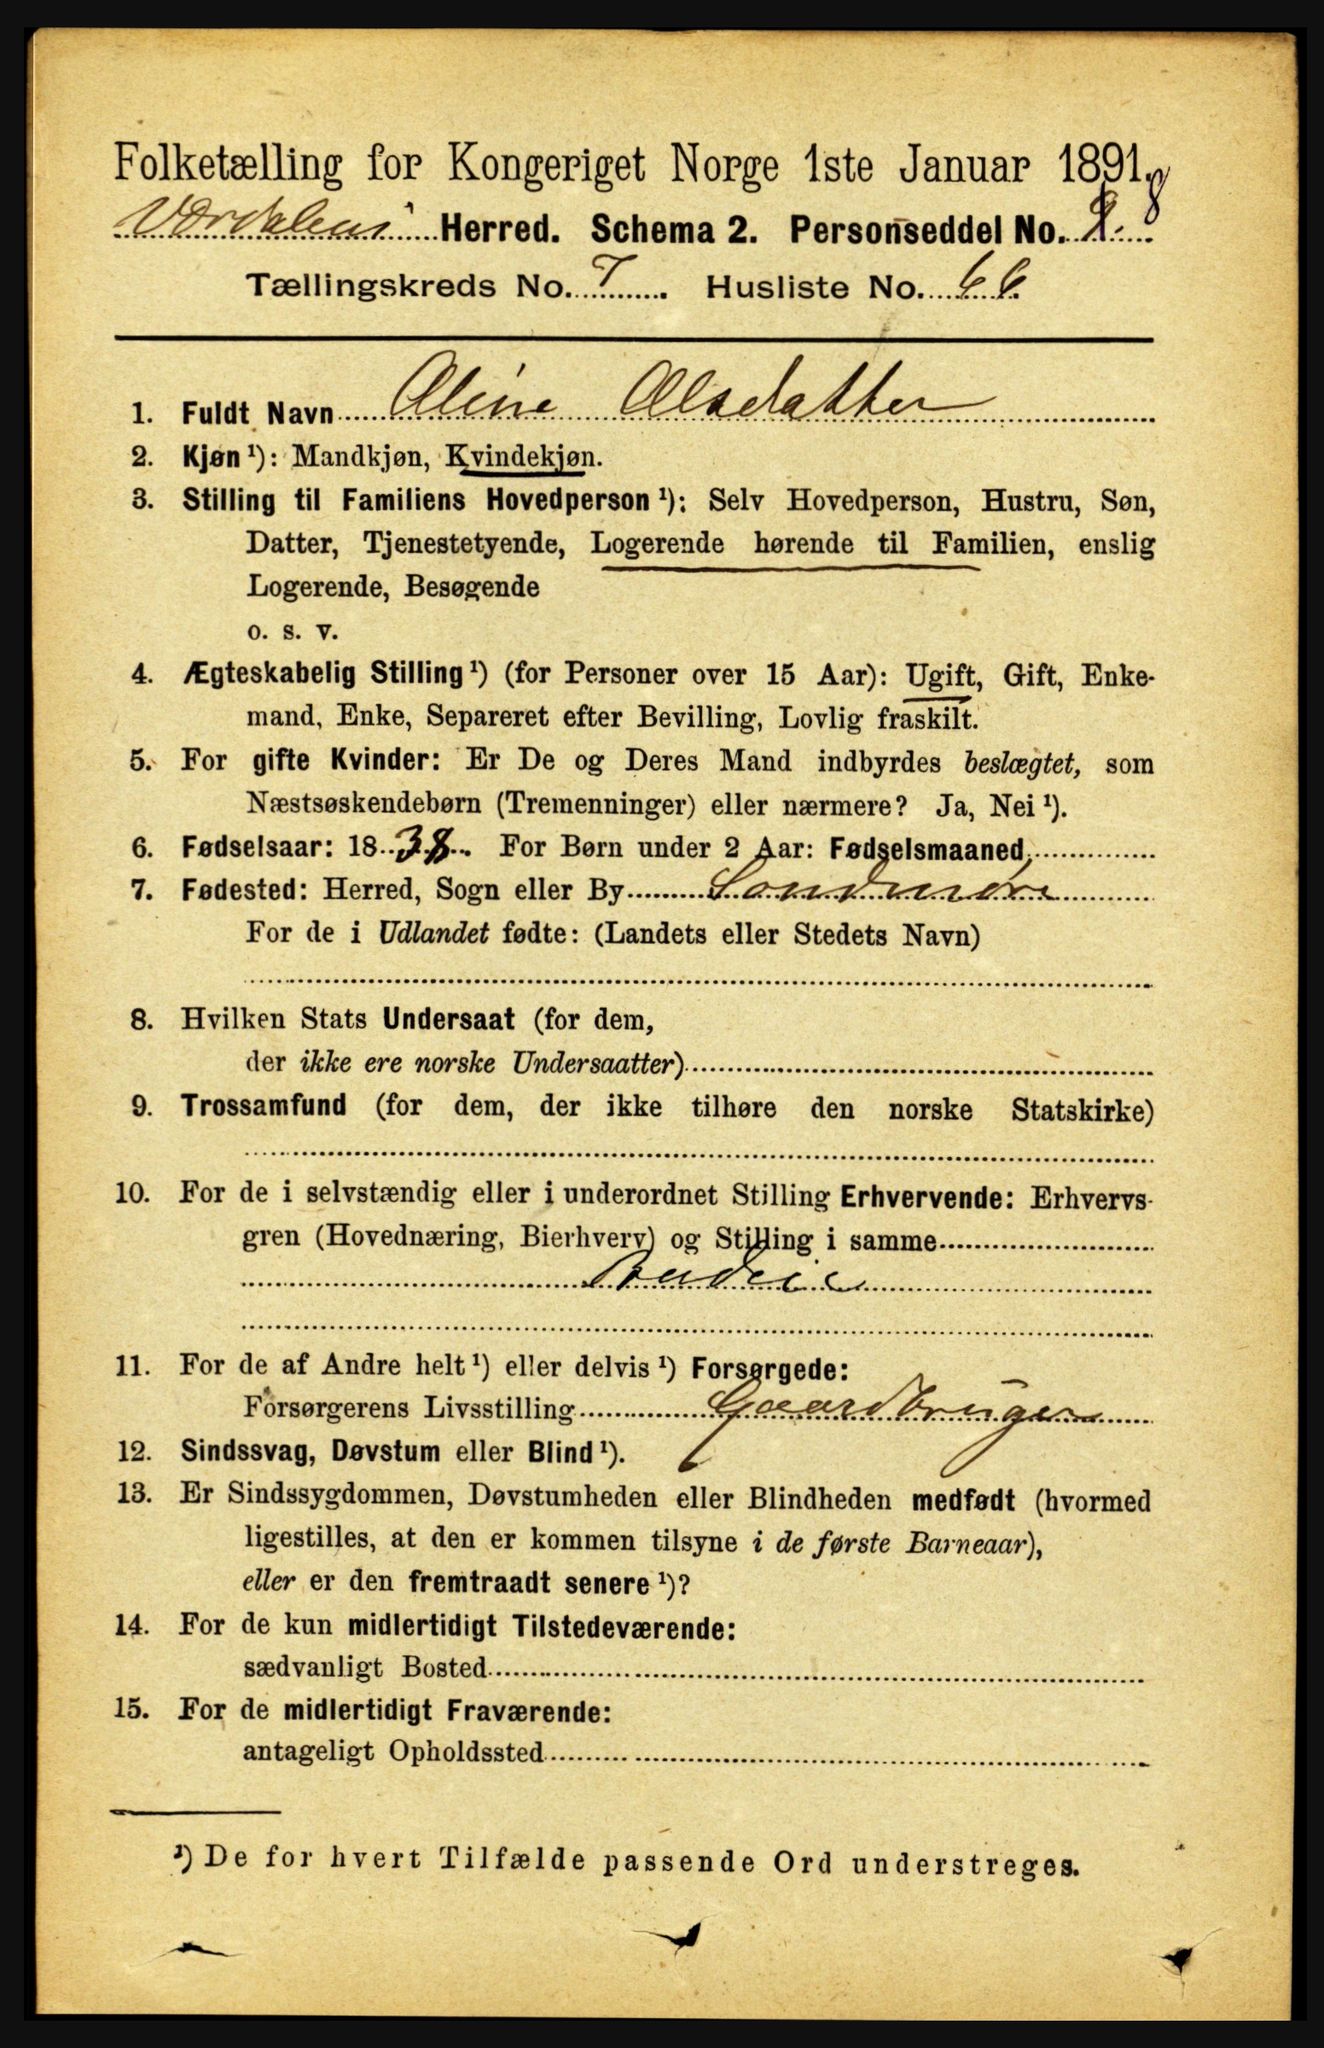 Folketælling for Kongeriget Norge 1ste Januar 1891.
Værdalens Herred. Schema 2. Personseddel No. 8
Tællingskreds No. 7. Husliste No. 66
1. Fuldt Navn Oline Olsdatter
2. Kjøn ¹): Mandkjøn, Kvindekjøn.
3. Stilling til Familiens Hovedperson ¹): Selv Hovedperson, Hustru, Søn,
Datter, Tjenestetyende, Logerende hørende til Familien, enslig
Logerende, Besøgende
o. s. v.
4. Ægteskabelig Stilling ¹) (for Personer over 15 Aar): Ugift, Gift, Enke-
mand, Enke, Separeret efter Bevilling, Lovlig fraskilt.
5. For gifte Kvinder: Er De og Deres Mand indbyrdes beslægtet, som
Næstsøskendebørn (Tremenninger) eller nærmere? Ja, Nei ¹).
6. Fødselsaar: 1838. For Børn under 2 Aar: Fødselsmaaned
7. Fødested: Herred, Sogn eller By Sondmøre
For de i Udlandet fødte: (Landets eller Stedets Navn)
8. Hvilken Stats Undersaat (for dem,
der ikke ere norske Undersaatter)
9. Trossamfund (for dem, der ikke tilhøre den norske Statskirke)
10. For de i selvstændig eller i underordnet Stilling Erhvervende: Erhvervs-
gren (Hovednæring, Bierhverv) og Stilling i samme
Budeie
11. For de af Andre helt ¹) eller delvis ¹) Forsørgede:
Forsørgerens Livsstilling Gaardbruger
12. Sindssvag, Døvstum eller Blind ¹).
13. Er Sindssygdommen, Døvstumheden eller Blindheden medfødt (hvormed
ligestilles, at den er kommen tilsyne i de første Barneaar),
eller er den fremtraadt senere ¹)?
14. For de kun midlertidigt Tilstedeværende:
sædvanligt Bosted
15. For de midlertidigt Fraværende:
antageligt Opholdssted
¹) De for hvert Tilfælde passende Ord understreges.